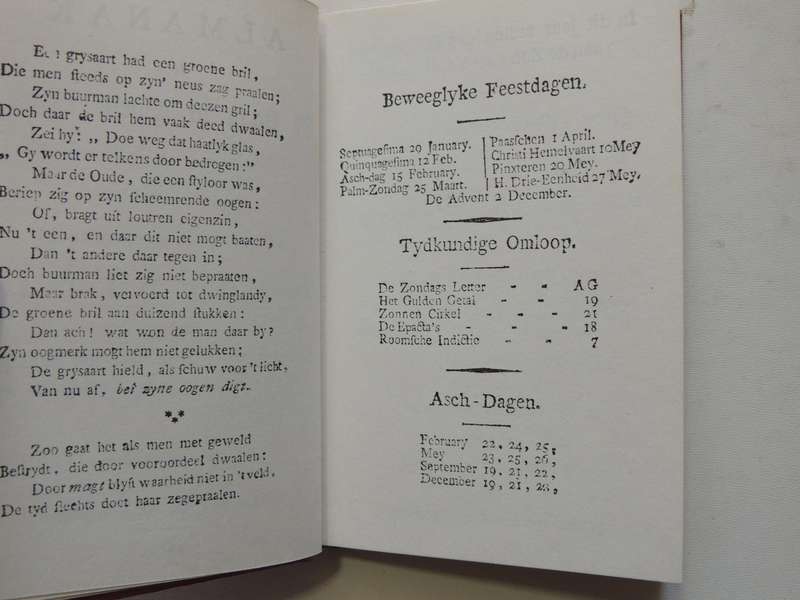 Een grysaart had een groene bril,
Die men ſteeds op zyn' neus zag praalen;
Zyn buurman lachte om deezen gril;
Doch daar de bril hem vaak deed dwaalen,
Zei hy: „ Doe weg dat haatlyk glas,
„ Gy wordt er telkens door bedrogen:"
Maar de Oude, die een ſtyloor was,
Beriep zig op zyn ſcheemrende oogen:
Of, bragt uit loutren eigenzin,
Nu 't een, en daar dit niet mogt baaten,
Dan 't andere daar tegen in;
Doch buurman liet zig niet bepraaten,
Maar brak, vervoerd tot dwinglandy,
De groene bril aan duizend ſtukken:
Dan ach! wat won de man daar by?
Zyn oogmerk mogt hem niet gelukken;
De grysaart hield, als ſchuw voor 't licht,
Van nu af, bei zyne oogen digt.
***
Zoo gaat het als men met geweld
Beſtrydt, die door vooroordeel dwaalen:
Door magt blyft waarheid niet in 't veld.
De tyd ſlechts doet haar zegepraalen.
ALMANAK
Beweeglyke Feestdagen.
Septuageſima 29 January.
Quinquageſima 12 Feb.
Asch-dag 15 February.
Palm-Zondag 25 Maart.
Paaſſchen 1 April.
Christi Hemelvaart 10 Mey
Pinxteren 20 Mey.
H. Drie-Eenheid 27 Mey.
De Advent 2 December.
Tydkundige Omloop.
De Zondags Letter - - A G
Het Gulden Getal - - 19
Zonnen Cirkel - - - 21
De Epacta's - - - 18
Roomſche Indictie - - 7
Asch-Dagen.
February 22, 24, 25,
Mey 23, 25, 26,
September 19, 21, 22,
December 19, 21, 22,